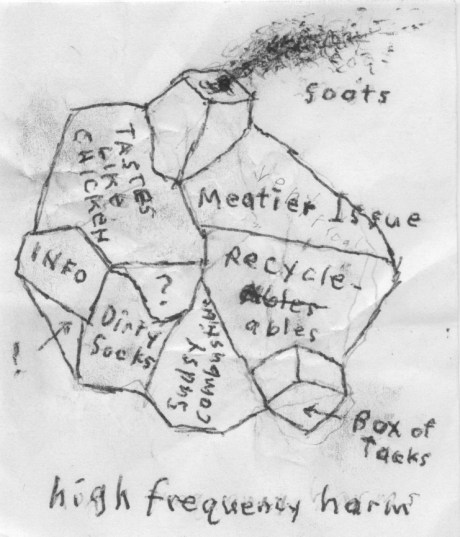 Soots
TASTES
LIKE
CHICKEN
Meatier Issue
INFO
?
Recycle-
ables
Dirty
Socks
Sudsy
!
Box of
Tacks
high frequency harm